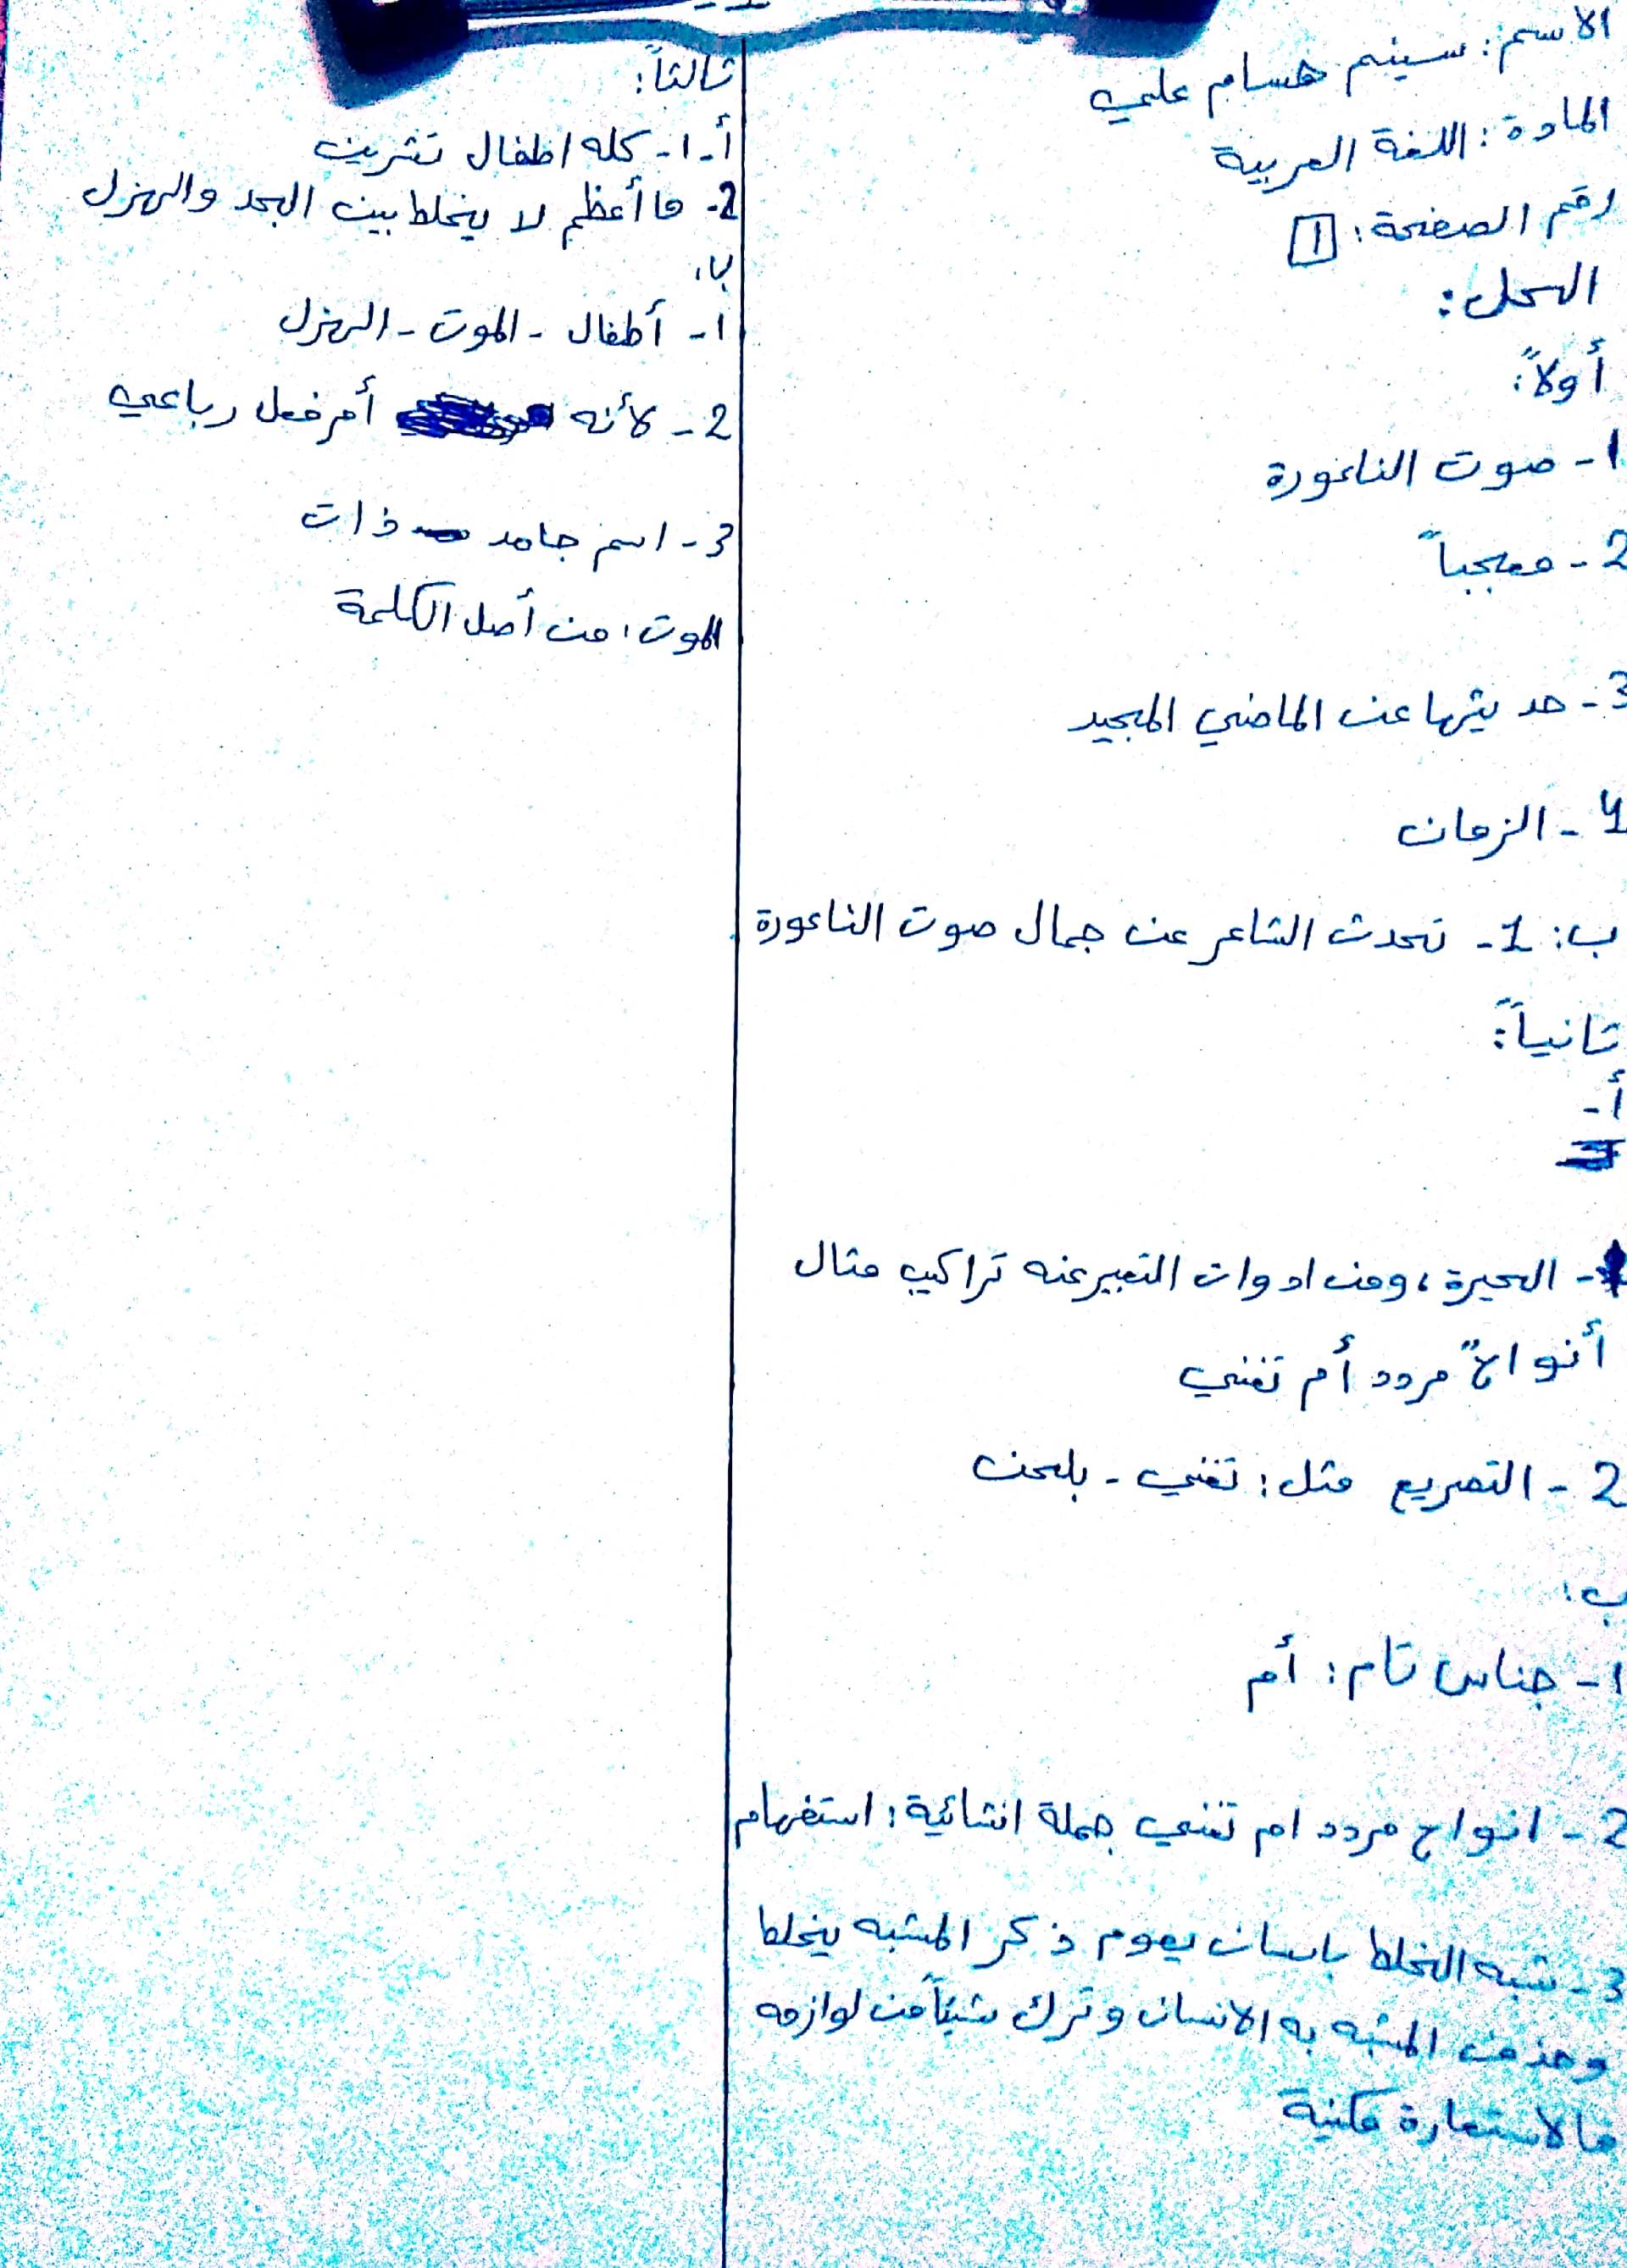 الاسم: سينم حسام علي
المادة: اللغة العربية
رقم الصفحة: 1
الحل:
أولاً:
1- صوت الناعورة
2- معجباً
3- حديثها عن الماضي المجيد
4- الزمان
ب: 1- تحدث الشاعر عن جمال صوت الناعورة
ثانياً:
أ-
- الحيرة، ومن ادوات التعبير عنه تراكيب مثال
أنواحٌ مردد أم تغني
2- التصريع مثل: تغني - بلحن
ب:
1- جناس تام: أم
2- انواح مردد ام تغني جملة انشائية: استفهام
3- شبه الخلط بانسان يقوم ذكر المشبه يخلط
وحذف المشبه به الانسان وترك شيئاً من لوازمه
فالاستعارة مكنية
ثالثاً:
أ-1- كله اطفال تشرين
2- ما أعظم لا يخلط بين الجد والهزل
ب:
1- أطفال - الموت - الهزل
2- لأنه أمر فعل رباعي
3- اسم جامد ذات
الموت: من أصل الكلمة